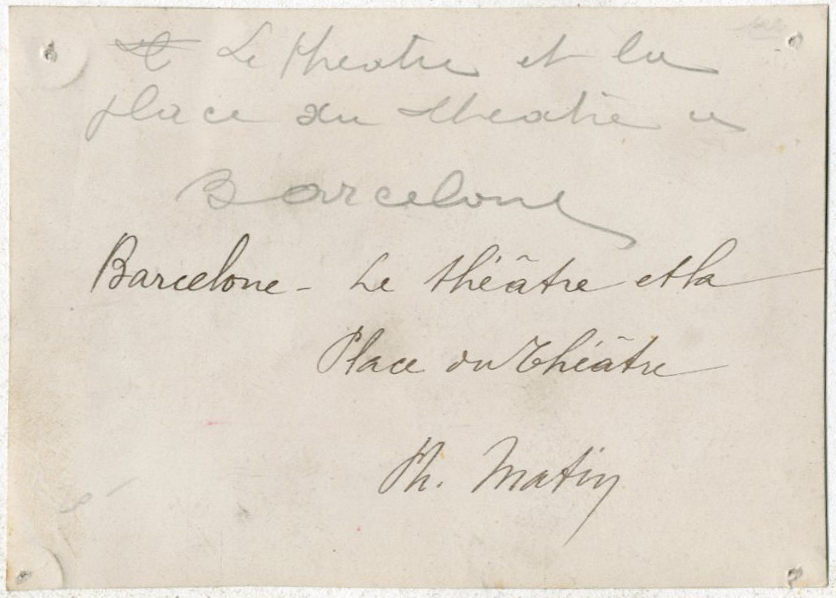 Le theatre et la
place du theatre a
Barcelone
Barcelone - Le théâtre et la
Place du Théâtre
Ph. Matin